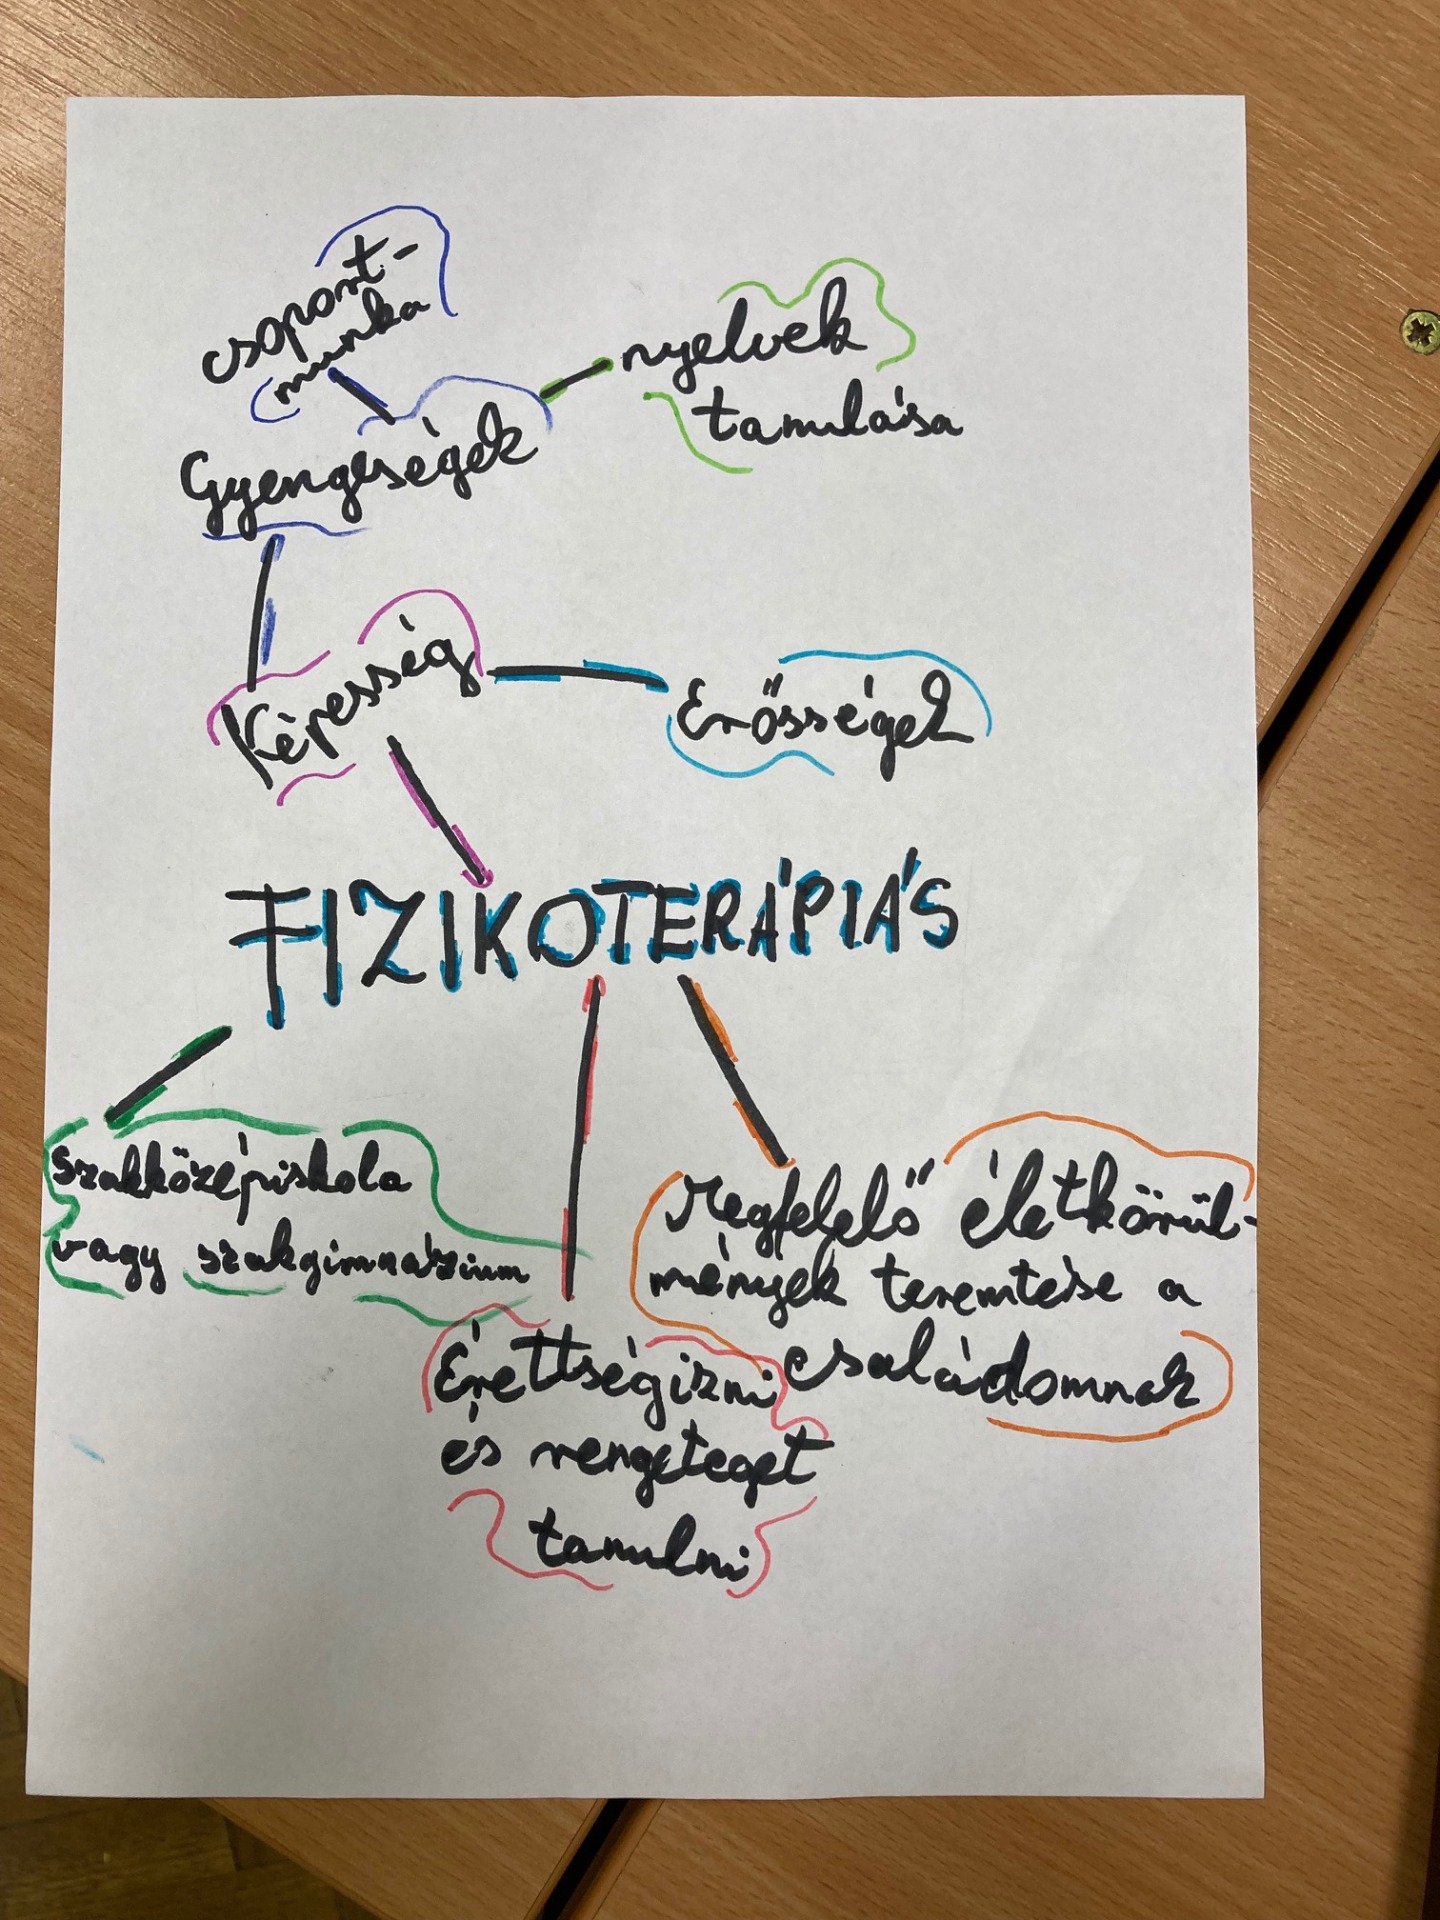 csoport-
munka
nyelvek
tanulása
Gyengeségek
Képesség
Erősségek
FIZIKOTERÁPIÁS
Szakközépiskola
vagy szakgimnázium
Megfelelő életkörül-
mények teremtése a
családomnak
Érettségizni
és rengeteget
tanulni